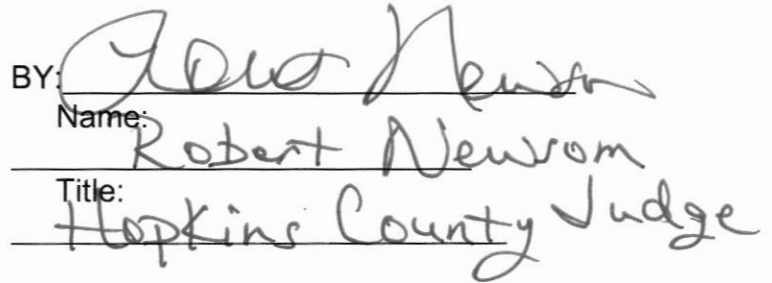 BY: Newsom
Name:
Robert Newsom
Title:
Hopkins County Judge